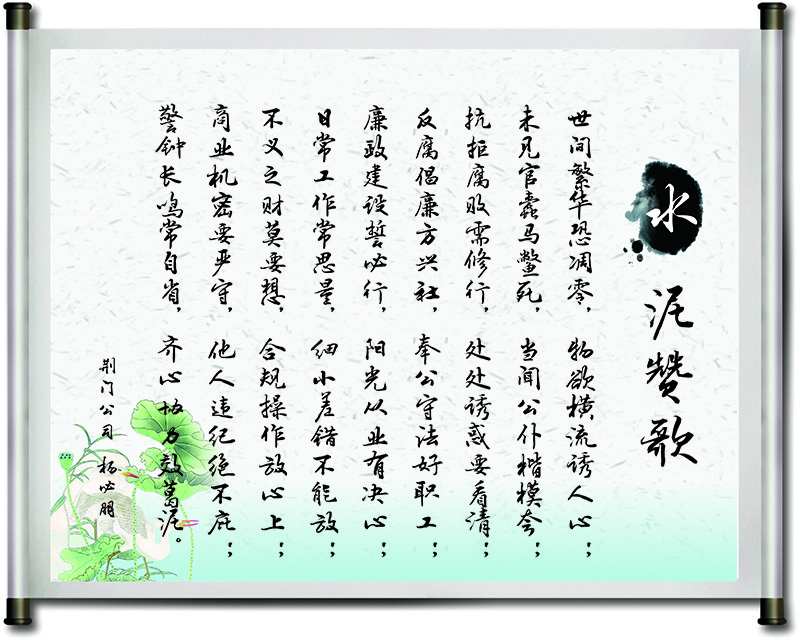 水泥赞歌
世间繁华恐凋零，物欲横流诱人心；
未见官蠹马鳖死，当闻公仆楷模夸；
抗拒腐败需修行，处处诱惑要看清；
反腐倡廉方兴社，奉公守法好职工；
廉政建设誓必行，阳光从业有决心；
日常工作常思量，细小差错不能放；
不义之财莫要想，合规操作放心上；
商业机密要严守，他人违纪绝不庇；
警钟长鸣常自省，齐心协力效葛泥。
荆门公司 杨必朋